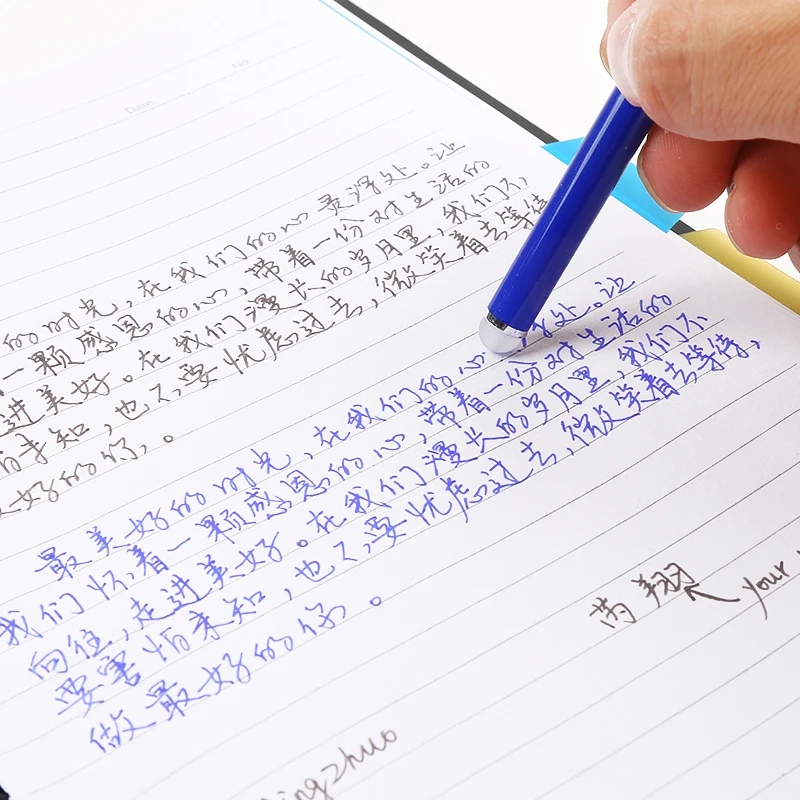 No
Date
的时光,在我们的心灵深处。让
一颗感恩的心,带着一份对生活的
进美好。在我们漫长的岁月里,我们不
怕未知,也不要忧虑过去,微笑着去等待
最好的你。
最美好的时光,在我们的心 处。让
我们怀着一颗感恩的心,带着一份对生活的
向往,走进美好。在我们漫长的岁月里,我们不
要害怕未知,也不要忧虑过去,微笑着去等待,
做最好的你。
芮翔 your
ingzhuo